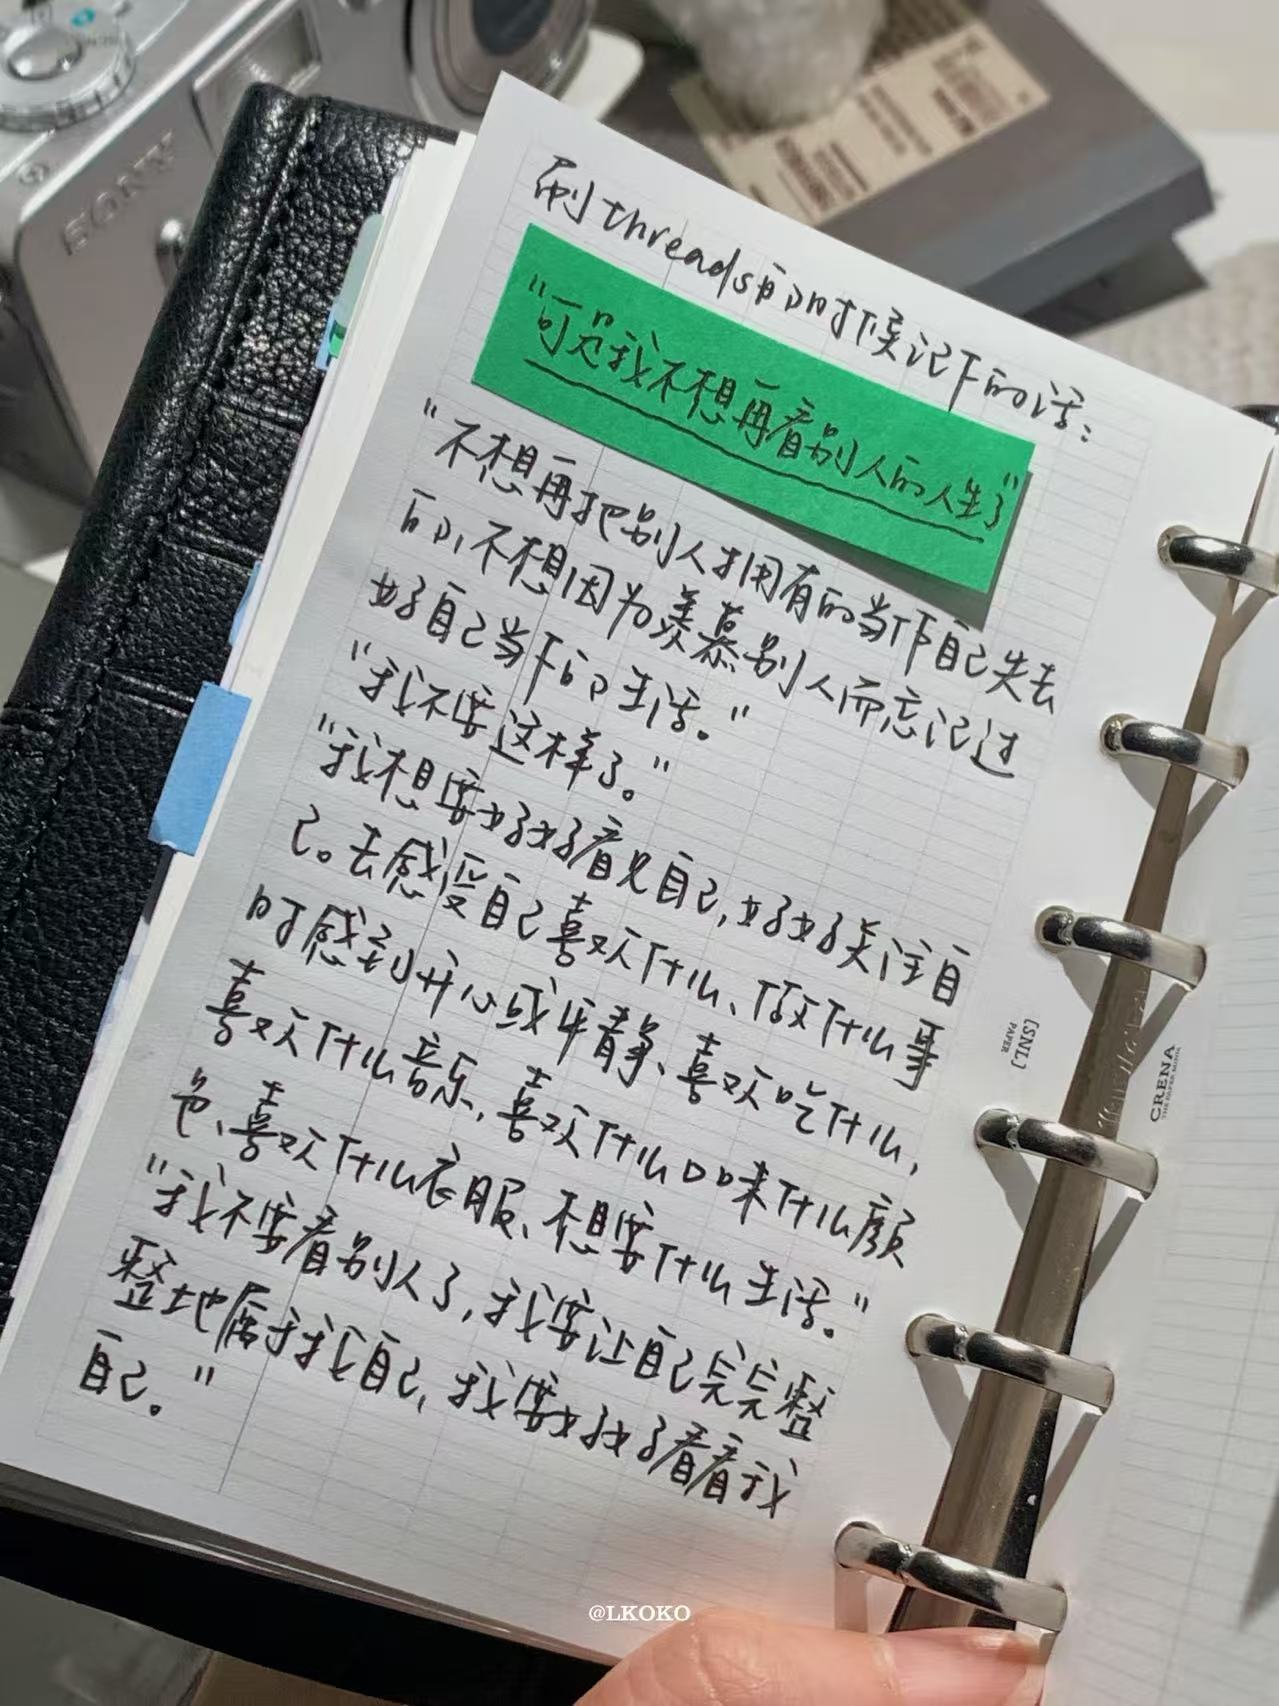 SONY
刷threads的时候记下的话：
“可是我不想再看别人的人生了”
“不想再把别人拥有的当作自己失去
的，不想因为羡慕别人而忘记过
好自己当下的生活。”
“我不要这样了。”
“我想要好好看见自己，好好关注自
己。去感受自己喜欢什么、做什么事
时感到开心或平静、喜欢吃什么，
喜欢什么音乐，喜欢什么口味什么颜
色、喜欢什么衣服、想要什么生活。”
“我不要看别人了，我要让自己完完整
整地属于我自己，我要好好看看我
自己。”
[SNL]
PAPER
CRENA
@LKOKO